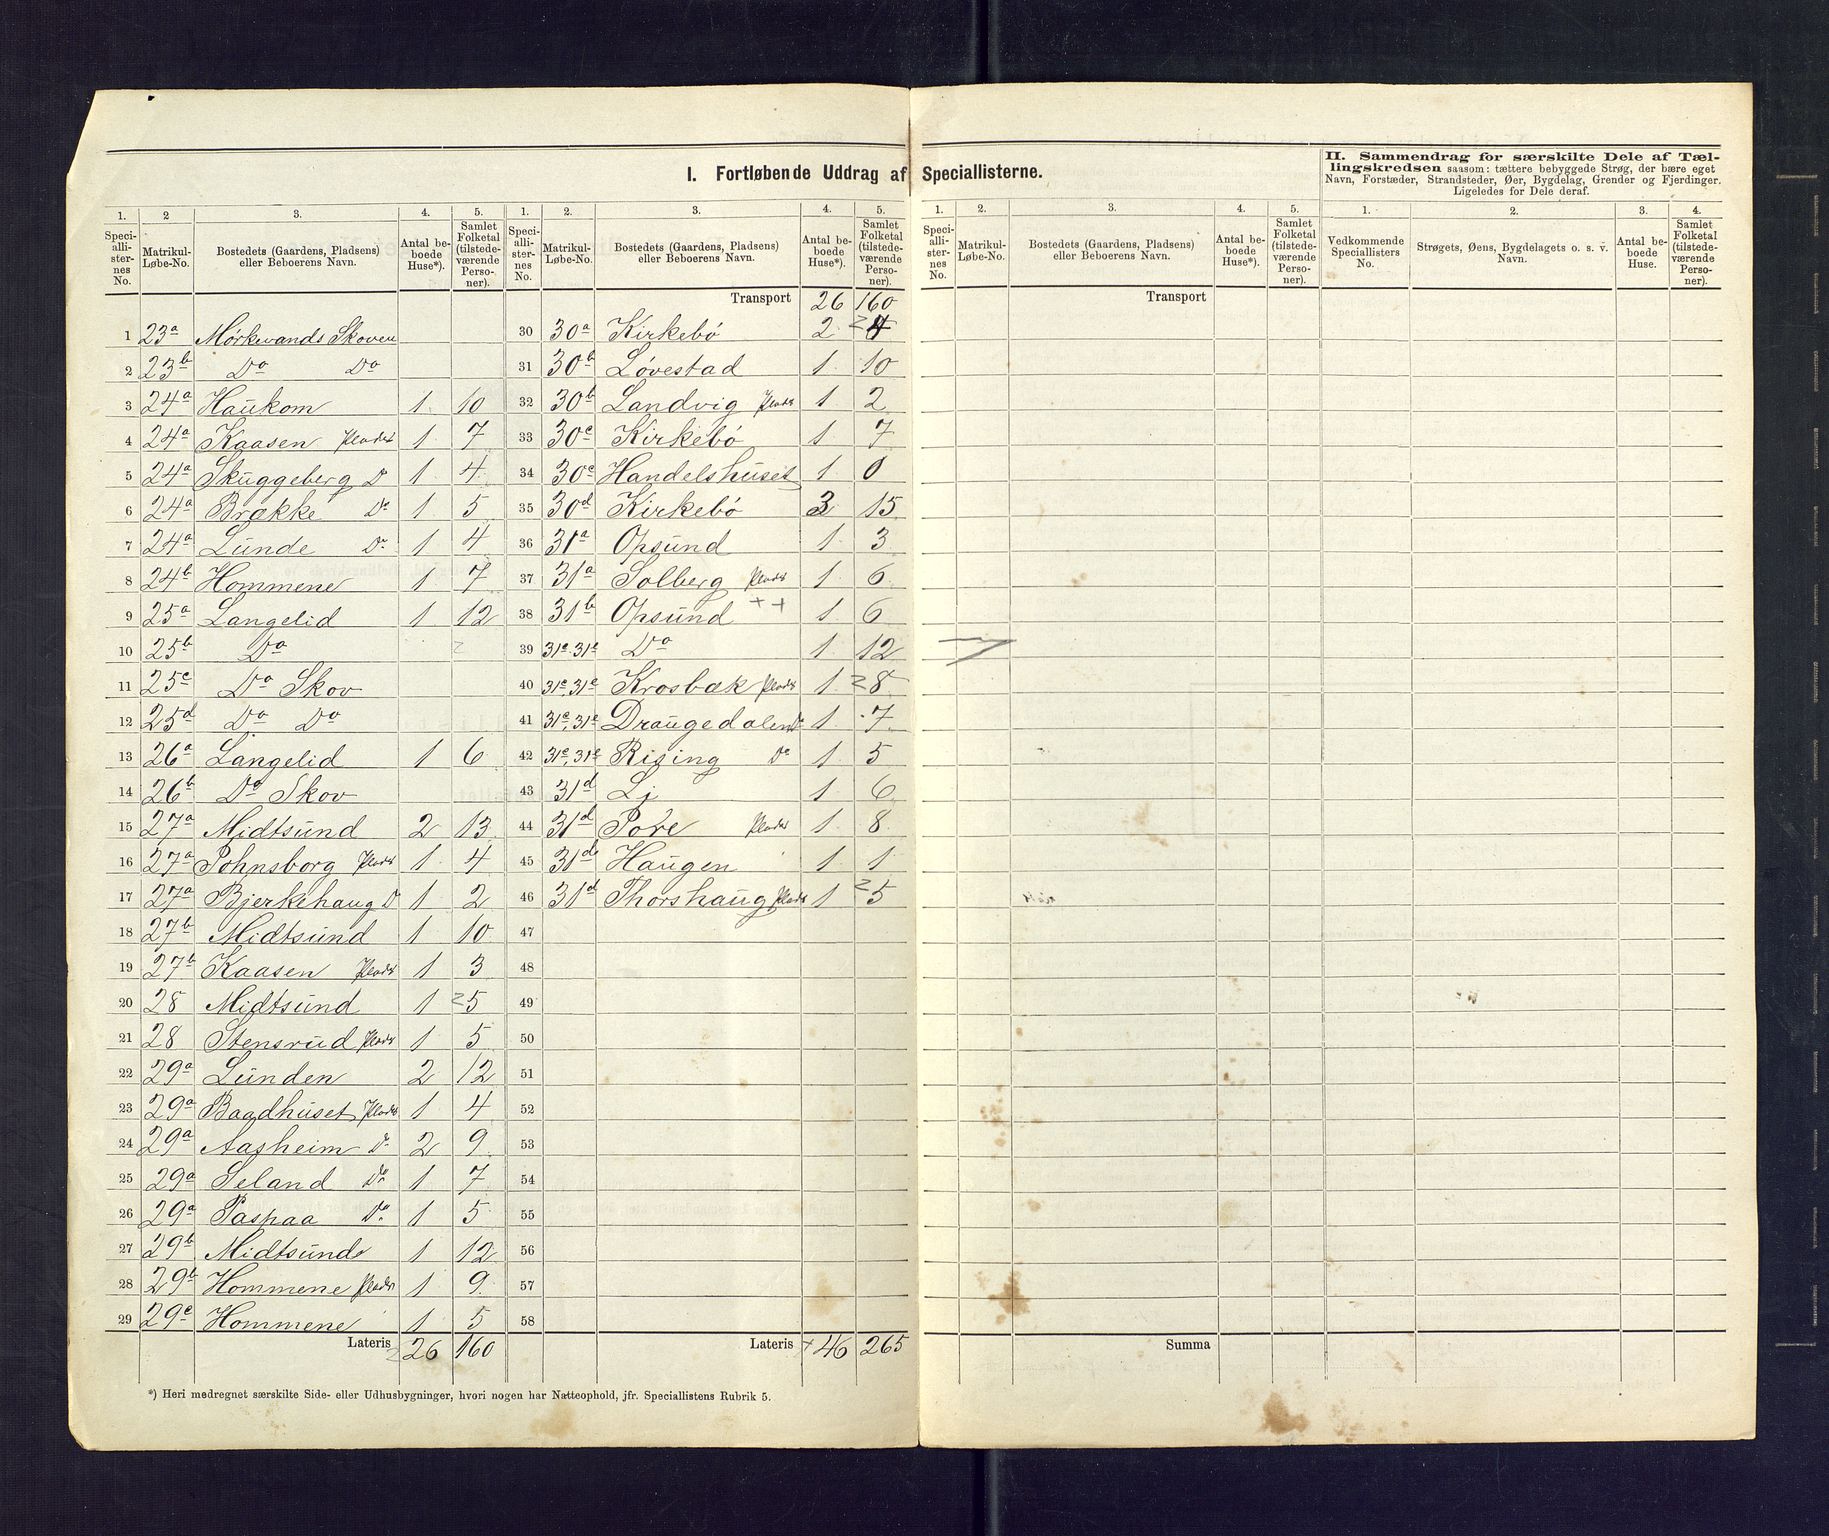 I. Fortløbende Uddrag af Speciallisterne.
II. Sammendrag for særskilte Dele af Tællingskredsen saasom: tættere bebyggede Strøg, der bære eget Navn, Forstæder, Strandsteder, Øer, Bygdelag, Grender og Fjerdinger. Ligeledes for Dele deraf.
1. 2 3. 4. 5. 1. 2. 3. 4. 5. 1. 2. 3. 4. 5. 1. 2. 3. 4.
Speciallisternes No. Matrikul-Løbe-No. Bostedets (Gaardens, Pladsens) eller Beboerens Navn. Antal beboede Huse*). Samlet Folketal (tilstedeværende Personer).
Speciallisternes No. Matrikul-Løbe-No. Bostedets (Gaardens, Pladsens) eller Beboerens Navn. Antal beboede Huse*). Samlet Folketal (tilstedeværende Personer).
Speciallisternes No. Matrikul-Løbe-No. Bostedets (Gaardens, Pladsens) eller Beboerens Navn. Antal beboede Huse*). Samlet Folketal (tilstedeværende Personer).
Vedkommende Speciallisters No. Strøgets, Øens, Bygdelagets o. s. v. Navn. Antal beboede Huse. Samlet Folketal (tilstedeværende Personer).
1 23a Mørkevands Skoven
2 23b Do Do
3 24a Haukom 1 10
4 24a Kaasen Plads 1 7
5 24a Skuggeberg Do 1 4
6 24a Brække Do 1 5
7 24a Lunde Do 1 4
8 24b Hommene 1 7
9 25a Langelid 1 12
10 25b Do
11 25c Do Skov
12 25d Do Do
13 26a Langelid 1 6
14 26b Do Skov
15 27a Midtsund 2 13
16 27a Johnsborg Plads 1 4
17 27a Bjerkehaug Do 1 2
18 27b Midtsund 1 10
19 27b Kaasen Plads 1 3
20 28 Midtsund 1 5
21 28 Stensrud Plads 1 5
22 29a Lunden 2 12
23 29a Baadhuset Plads 1 4
24 29a Aasheim Do 2 9
25 29a Seland Do 1 7
26 29a Paspaa Do 1 5
27 29b Midtsund 1 12
28 29b Hommene Plads 1 9
29 29c Hommene 1 5
Lateris 26 160
Transport 26 160
30 30a Kirkebö 2 4
31 30b Lövestad 1 10
32 30b Landvig Plads 1 2
33 30c Kirkebö 1 7
34 30c Handelshuset 1 0
35 30d Kirkebö 3 15
36 31a Opsund 1 3
37 31a Solberg Plads 1 6
38 31b Opsund ++ 1 6
39 31c.31e Do 1 12
40 31c,31e Krosbæk Plads 1 8
41 31c,31e Draugedalen Do 1 7
42 31c,31e Rising Do 1 5
43 31d Li 1 6
44 31d Plads 1 8
45 31d Haugen 1 1
46 31d Thorshaug Plads 1 5
47
48
49
50
51
52
53
54
55
56
57
58
Lateris 46 265
Transport
Summa
*) Heri medregnet særskilte Side- eller Udhusbygninger, hvori nogen har Natteophold, jfr. Speciallistens Rubrik 5.